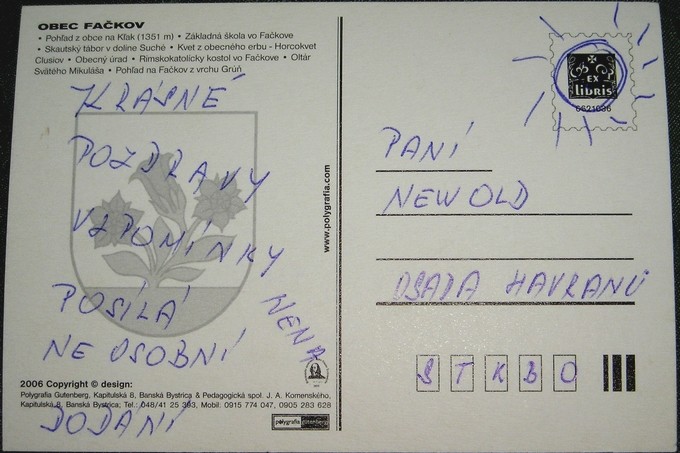 OBEC FAČKOV
• Pohľad z obce na Kľak (1351 m) • Základná škola vo Fačkove
• Skautský tábor v doline Suché • Kvet z obecného erbu - Horcokvet
Clusiov • Obecný úrad • Rímskokatolícky kostol vo Fačkove • Oltár
Svätého Mikuláša • Pohľad na Fačkov z vrchu Grúň
KRÁSNÉ
POZDRAVY
VZPOMÍNKY
POSÍLÁ
NENA
NE OSOBNÍ
DODÁNÍ
2006 Copyright © design:
Polygrafia Gutenberg, Kapitulská 8, Banská Bystrica & Pedagogická spol. J. A. Komenského,
Kapitulská 8, Banská Bystrica; Tel.: 048/41 25 383, Mobil: 0915 774 047, 0905 283 628
polygrafia gutenberg
www.polygrafia.com
EX
libris
6621036
PANÍ
NEW OLD
OSADA HAVRANŮ
S T K B O